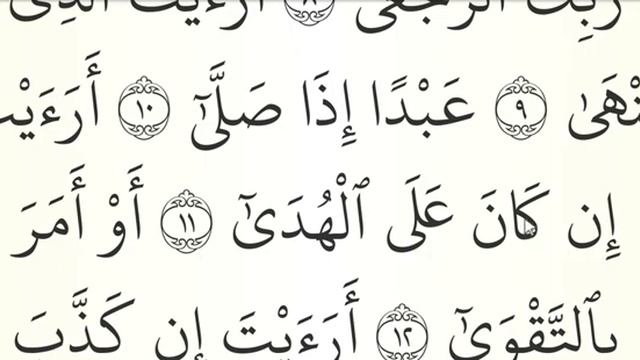 رَبِّكَ ٱلرُّجْعَىٰٓ ٨ أَرَءَيْتَ ٱلَّذِى
يَنْهَىٰ ٩ عَبْدًا إِذَا صَلَّىٰٓ ١٠ أَرَءَيْتَ
إِن كَانَ عَلَى ٱلْهُدَىٰٓ ١١ أَوْ أَمَرَ
بِٱلتَّقْوَىٰٓ ١٢ أَرَءَيْتَ إِن كَذَّبَ